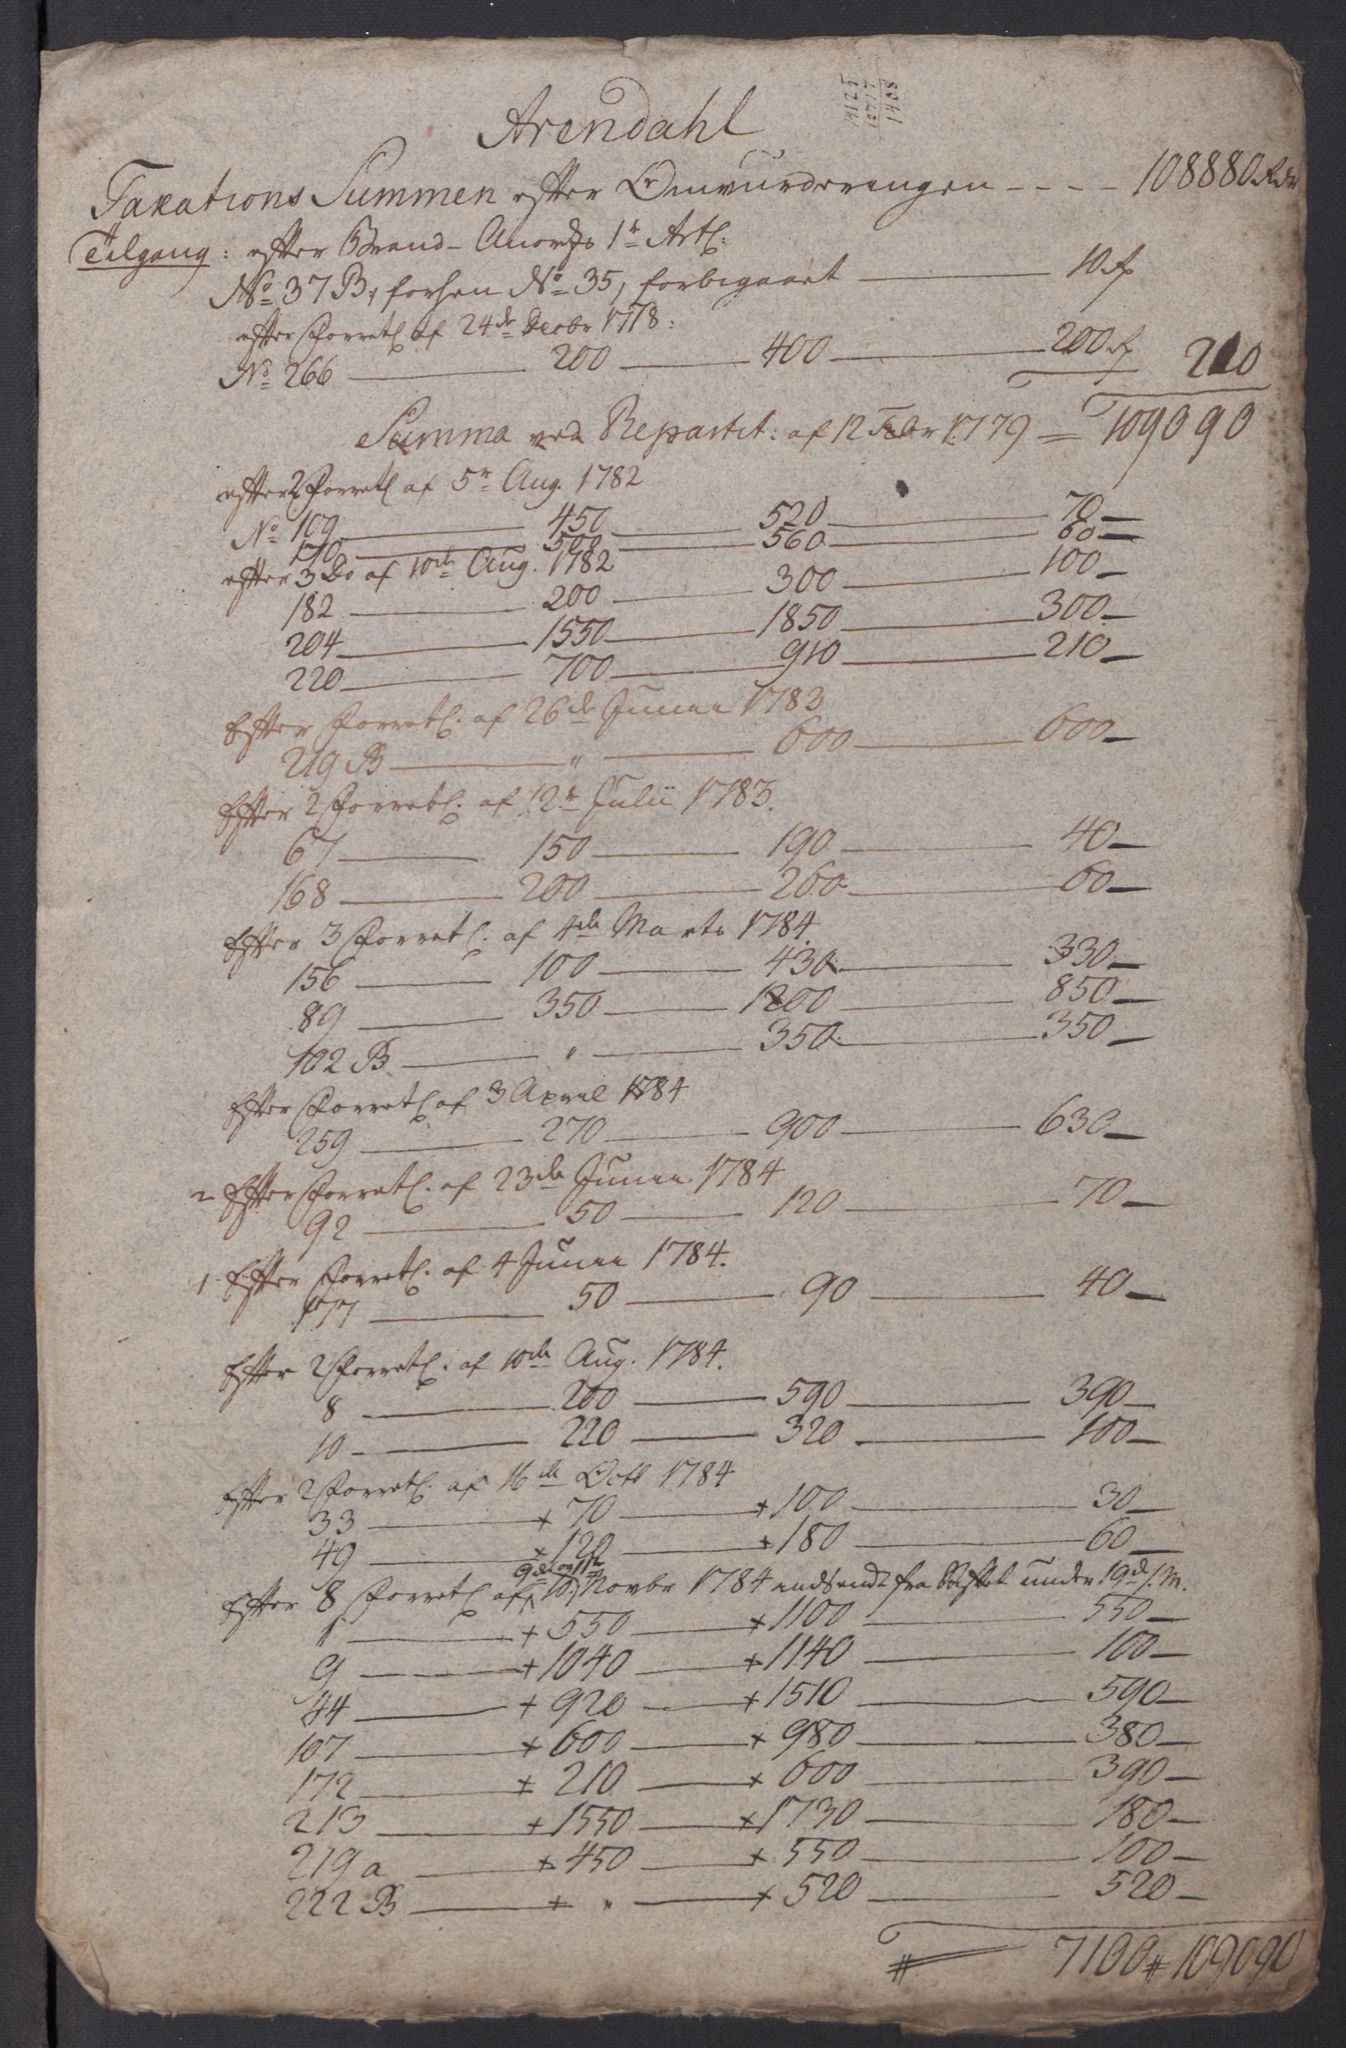 14125
12717
1408
Arendahl
Taxations Summen efter Omvurderingen - - - - 108880 Rdr
Tilgang: efter Brand-Anordgs 1te Artl:
No 37 B, forhen No 35, forbigaaet — 10 rd
efter Forretl af 24de Decbr 1778:
No 266 — 200 — 400 — 200 rd 210
Summa ved Repartit: af 12 Febr 1779 = 109090
efter 2 Forretl af 5te Aug. 1782
No 109 — 450 — 520 — 70 —
170 — 500 — 560 — 60 —
efter 3 Do af 10de Aug. 1782
182 — 200 — 300 — 100 —
204 — 1550 — 1850 — 300 —
220 — 700 — 910 — 210 —
Efter Forretl. af 26de Junii 1783
219 B — " — 600 — 600 —
Efter 2 Forretl. af 12te Julii 1783.
67 — 150 — 190 — 40 —
168 — 200 — 260 — 60 —
Efter 3 Forretl. af 4de Marts 1784.
156 — 100 — 430 — 330 —
89 — 350 — 1200 — 850 —
102 B — " — 350 — 350 —
Efter Forretl af 3 April 1784
259 — 270 — 900 — 630 —
2 Efter Forretl. af 23de Junii 1784
92 — 50 — 120 — 70 —
1 Efter Forretl. af 4 Junii 1784.
177 — 50 — 90 — 40 —
Efter 2 Forretl. af 10de Aug. 1784.
8 — 200 — 590 — 390 —
10 — 220 — 320 — 100 —
Efter 2 Forretl. af 16de Octb 1784
33 — + 70 — + 100 — 30 —
49 — + 120 — + 180 — 60 —
9de og 11te
Efter 8 Forretl af 10 Novbr 1784 indsendt fra Stiftet under 19de s. M.
1 — + 550 — + 1100 — 550 —
9 — + 1040 — + 1140 — 100 —
44 — + 920 — + 1510 — 590 —
107 — + 600 — + 980 — 380 —
172 — + 210 — + 600 — 390 —
213 — + 1550 — + 1730 — 180 —
219 a — + 450 — + 550 — 100 —
222 B — + " — + 520 — 520 —
# — 7100 # 109090